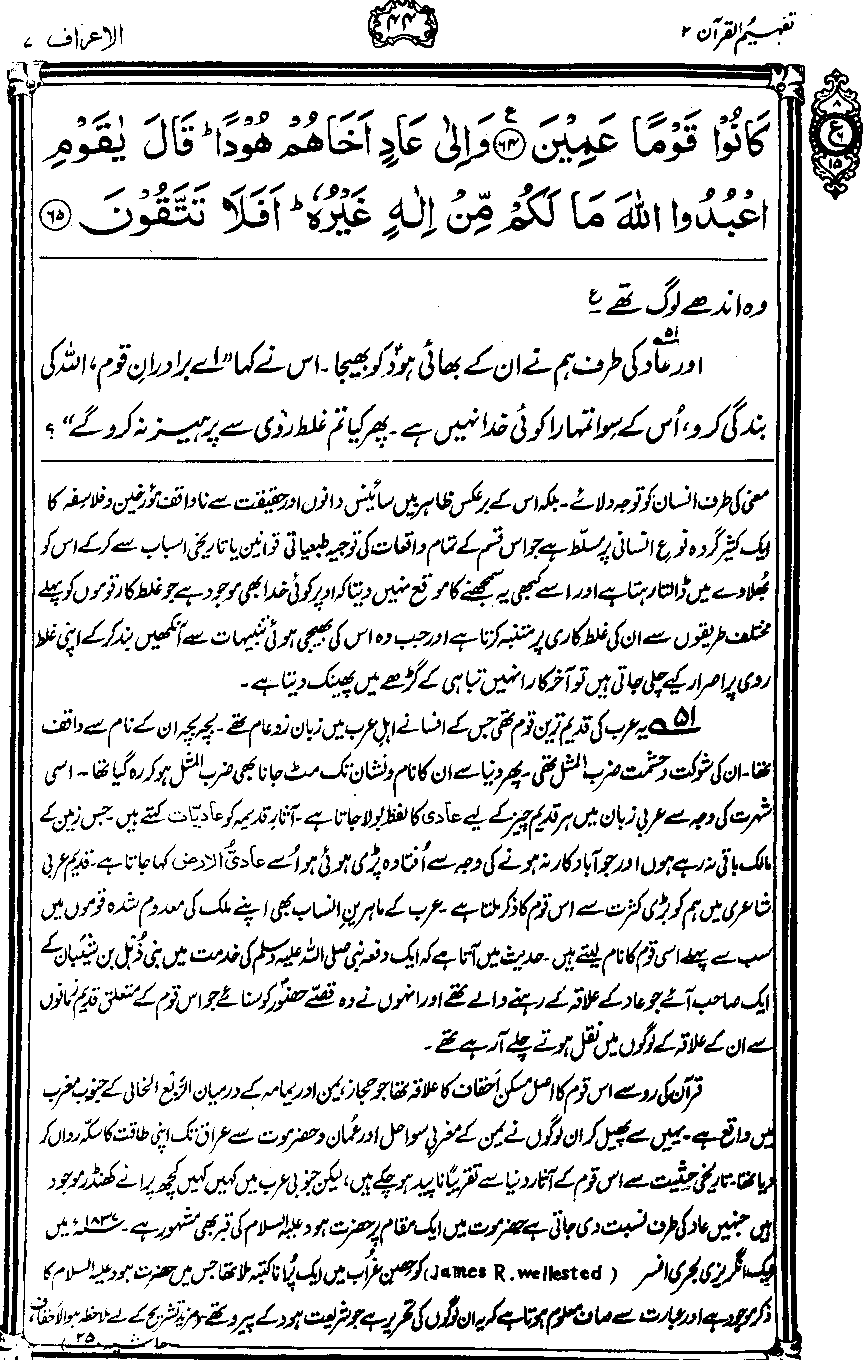 تفہیم القرآن ۲
۴۴
الاعراف ۷
۸
ع
۱۵
كَانُوْا قَوْمًا عَمِيْنَ ۝۶۴ وَاِلٰى عَادٍ اَخَاهُمْ هُوْدًا ؕ قَالَ يٰقَوْمِ
اعْبُدُوا اللّٰهَ مَا لَكُمْ مِّنْ اِلٰهٍ غَيْرُهٗ ؕ اَفَلَا تَتَّقُوْنَ ۝۶۵
وہ اندھے لوگ تھے ؏
اور عاد۵۱ کی طرف ہم نے ان کے بھائی ہودؑ کو بھیجا۔ اس نے کہا ”اے برادرانِ قوم، اللہ کی
بندگی کرو، اُس کے سوا تمہارا کوئی خدا نہیں ہے۔ پھر کیا تم غلط روی سے پرہیز نہ کرو گے“؟
معنی کی طرف انسان کو توجہ دلائے۔ بلکہ اس کے برعکس ظاہر بیں سائینس دانوں اور حقیقت سے ناواقف مؤرخین و فلاسفہ کا
ایک کثیر گروہ نوعِ انسانی پر مسلّط ہے جو اس قسم کے تمام واقعات کی توجیہ طبعیاتی قوانین یا تاریخی اسباب سے کر کے اس کو
بُھلاوے میں ڈالتا رہتا ہے اور اسے کبھی یہ سمجھنے کا موقع نہیں دیتا کہ اوپر کوئی خدا بھی موجود ہے جو غلط کار قوموں کو پہلے
مختلف طریقوں سے ان کی غلط کاری پر متنبہ کرتا ہے اور جب وہ اس کی بھیجی ہوئی تنبیہات سے آنکھیں بند کر کے اپنی غلط
روی پر اصرار کیے چلی جاتی ہیں تو آخر کار انہیں تباہی کے گڑھے میں پھینک دیتا ہے۔
۵۱ یہ عرب کی قدیم ترین قوم تھی جس کے افسانے اہلِ عرب میں زبان زدِ عام تھے۔ بچہ بچہ ان کے نام سے واقف
تھا۔ ان کی شوکت و حشمت ضرب المثل تھی۔ پھر دنیا سے ان کا نام و نشان تک مٹ جانا بھی ضرب المثل ہو کر رہ گیا تھا۔ اسی
شہرت کی وجہ سے عربی زبان میں ہر قدیم چیز کے لیے عادی کا لفظ بولا جاتا ہے۔ آثارِ قدیمہ کو عادیّات کہتے ہیں۔ جس زمین کے
مالک باقی نہ رہے ہوں اور جو آباد کار نہ ہونے کی وجہ سے اُفتادہ پڑی ہوئی ہو اُسے عادیُّ الارض کہا جاتا ہے۔ قدیم عربی
شاعری میں ہم کو بڑی کثرت سے اس قوم کا ذکر ملتا ہے۔ عرب کے ماہرینِ انساب بھی اپنے ملک کی معدوم شدہ قوموں میں
سب سے پہلے اسی قوم کا نام لیتے ہیں۔ حدیث میں آتا ہے کہ ایک دفعہ نبی صلی اللہ علیہ وسلم کی خدمت میں بنی ذُہل بن شَیبان کے
ایک صاحب آئے جو عاد کے علاقہ کے رہنے والے تھے اور انہوں نے وہ قصّے حضورؐ کو سنائے جو اس قوم کے متعلق قدیم زمانوں
سے ان کے علاقہ کے لوگوں میں نقل ہوتے چلے آرہے تھے۔
قرآن کی رو سے اس قوم کا اصل مسکن اَحقاف کا علاقہ تھا جو حجاز، یمن اور یمامہ کے درمیان الرَّبع الخالی کے جنوب مغرب
میں واقع ہے۔ یہیں سے پھیل کر ان لوگوں نے یمن کے مغربی سواحل اور عُمان و حضرموت سے عراق تک اپنی طاقت کا سکّہ رواں کر
دیا تھا۔ تاریخی حیثیت سے اس قوم کے آثار دنیا سے تقریباً ناپید ہو چکے ہیں، لیکن جنوبی عرب میں کہیں کہیں کچھ پرانے کھنڈر موجود
ہیں جنہیں عاد کی طرف نسبت دی جاتی ہے۔ حضرموت میں ایک مقام پر حضرت ہود علیہ السلام کی قبر بھی مشہور ہے۔ ۱۸۳۷ء میں
ایک انگریزی بحری افسر (James R.wellested) کو حصنِ غُراب میں ایک پُرانا کتبہ ملا تھا جس میں حضرت ہود علیہ السلام کا
ذکر موجود ہے اور عبارت سے صاف معلوم ہوتا ہے کہ یہ ان لوگوں کی تحریر ہے جو شریعتِ ہود کے پیرو تھے۔ (مزید تشریح کے لیے ملاحظہ ہو الاحقاف،
حاشیہ ۲۵)